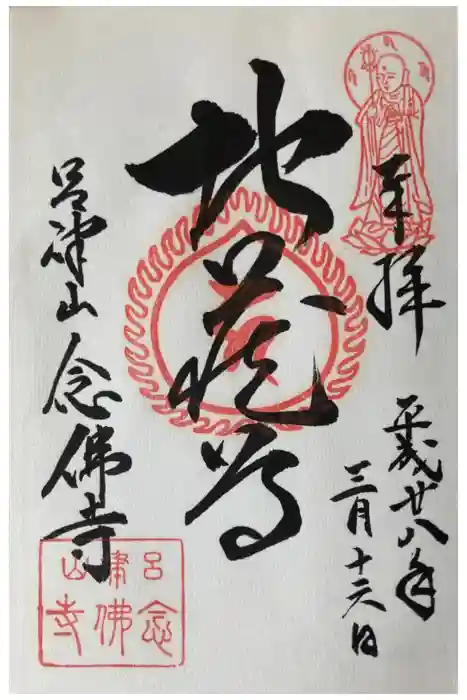 奉拝
平成廿八年
三月十六日
地蔵尊
呂律山 念佛寺
呂律山
念佛寺